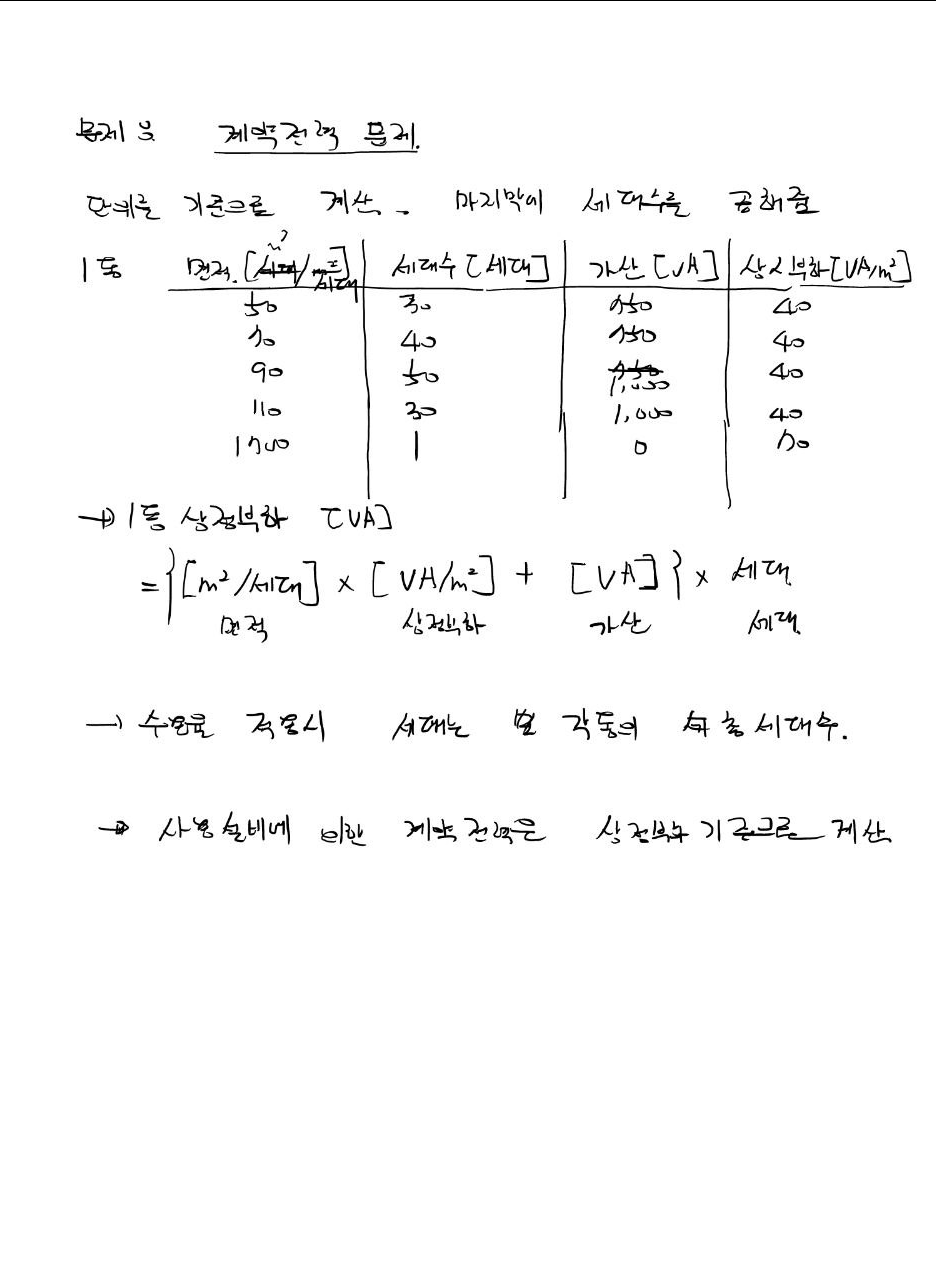 문제 3. 계약전력 문제.
단위를 기준으로 계산. 마지막에 세대수를 곱해줌
1동 면적 [m²/세대] 세대수 [세대] 가산 [VA] 상시부하 [VA/m²]
50 30 750 40
70 40 750 40
90 50 1,000 40
110 30 1,000 40
1700 1 0 70
→ 1동 상정부하 [VA]
= {[m²/세대] × [VA/m²] + [VA]} × 세대
면적 상정부하 가산 세대
→ 수용률 적용시 세대는 각동의 총 세대수.
→ 사용설비에 의한 계약전력은 상정부하 기준으로 계산